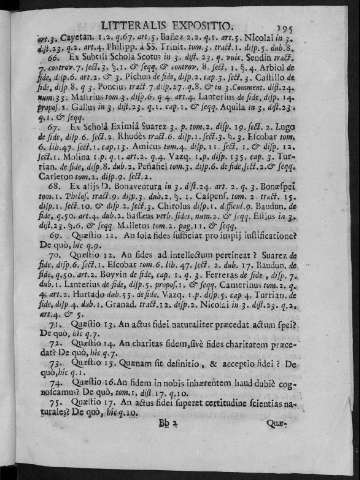 LITTERALIS EXPOSITIO. 195
art.3. Cayetan. 1.2. q.67. art.5. Bañez 2.2. q.1. art.5. Nicolai in 3.
dist.23. q.2. art.4. Philipp. à SS. Trinit. tom.3. tract.1. disp.5. dub.8.
66. Ex Subtili Scholà Scotus in 3. dist. 23. q. unic. Sendin tract.
7. controv. 7. sect.3. §.1. & seqq. & controv. 8. sect. 1. §. 4. Arbiol de
fide, disp.6. art.2. & 3. Pichon de fide, disp.2. cap. 3. sect.3. Castillo de
fide, disp.8. q 3. Poncius tract.7. disp.27. q.8. & in 3. Comment. dist.24.
num.33. Mastrius tom.3. disp.6. q.4. art.4. Lanterius de fide, disp. 14.
propos.2. Gallus in 3. dist.23. q.1. cap.1. & seqq. Aquila in 3. dist.23.
q.1. & seqq.
67. Ex Scholà Eximià Suarez 3. p. tom.2. disp. 19. sect.2. Lugo
de fide, disp.1. & seqq. Rhodes tract.6. disp.1. sect.3. §. 3. Escobar tom.
6. lib.47. sect.1. cap.13. Amicus tom.4. disp. 11. sect. 1. & disp. 12.
sect.1. Molina 1.p. q.1. art.2. q.4. Vazq. 1.p. disp. 135. cap. 3. Tur-
rian. de fide, disp.8. dub.2. Peñafiel tom.3. disp.6. de fide, sect.2. & seqq.
Carleton tom.2. disp.9. sect.2.
68. Ex alijs D. Bonaventura in 3. dist.24. art. 2. q. 3. Bonæspei
tom.1. Theolog. tract.9. disp.3. dub.2. §. 1. Caispenf. tom. 2. tract. 15.
disp.1. sect.10. & disp.2. sect.3. Chirolus disp.1. diffcul.9. Baudun. de
fide, q.50. art.4. dub.2. Basseus verb. fides, num.2. & seqq. Estius in 3.
dist.23. §.6. & seqq. Malletus tom.2. pag.11. & seqq.
69. Quæstio 11. An sola fides sufficiat pro impij iustificatione?
De quò, hic q.9.
70. Quæstio 12. An fides ad intellectum pertineat? Suarez de
fide, disp.6. sect.1. Escobar tom.6. lib. 47. sect. 2. dub. 17. Baudun. de
fide, q.50. art.2. Boyvin de fide, cap. 1. q. 3. Ferreras de fide, disp. 7.
dub.1. Lanterius de fide, disp.5. propos.1. & seqq. Camerinus tom.2. q.
4. art.2. Hurtado dub.15. de fide, Vazq. 1.p. disp.5. cap. 4. Turrian. de
fide disp.4. dub.1. Granad. tract.12. disp.2. Nicolai in 3. dist.23. q.2.
art.4. & 5.
71. Quæstio 13. An actus fidei naturaliter præcedat actum spei?
De quò, hic q.7.
72. Quæstio 14. An charitas fidem, sivè fides charitatem præce-
dat? De quò, hic q.7.
73. Quæstio 15. Quænam sit definitio, & acceptio fidei? De
quò, hic q.1.
74. Quæstio 16. An fidem in nobis inhærentem haud dubiè cog-
noscamus? De quò, tom.1. dist.17. q.10.
75. Quæstio 17. An actus fidei superet certitudine scientias na-
turales? De quò, hic q.10.
Bb 2 Quæ-